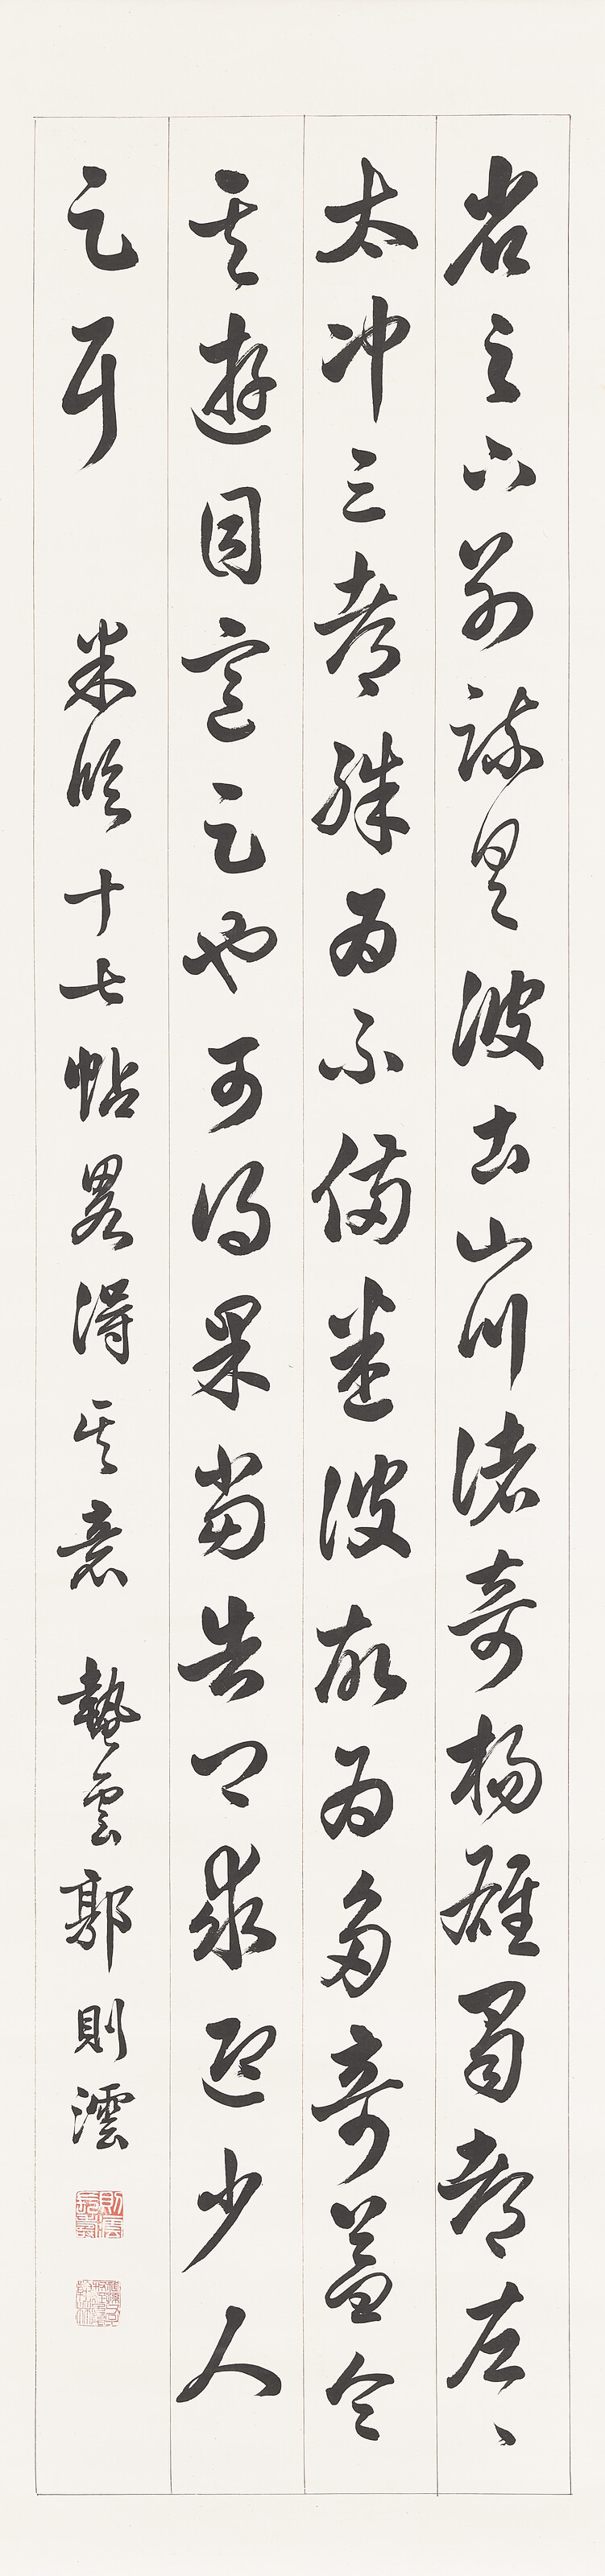 省足下別疏具彼土山川諸奇楊雄蜀都左
太冲三都殊為不備悉彼故為多奇益令
其遊目意足也可得果當告卿求迎少人
足耳 米臨十七帖畧得其意 蟄雲郭則澐